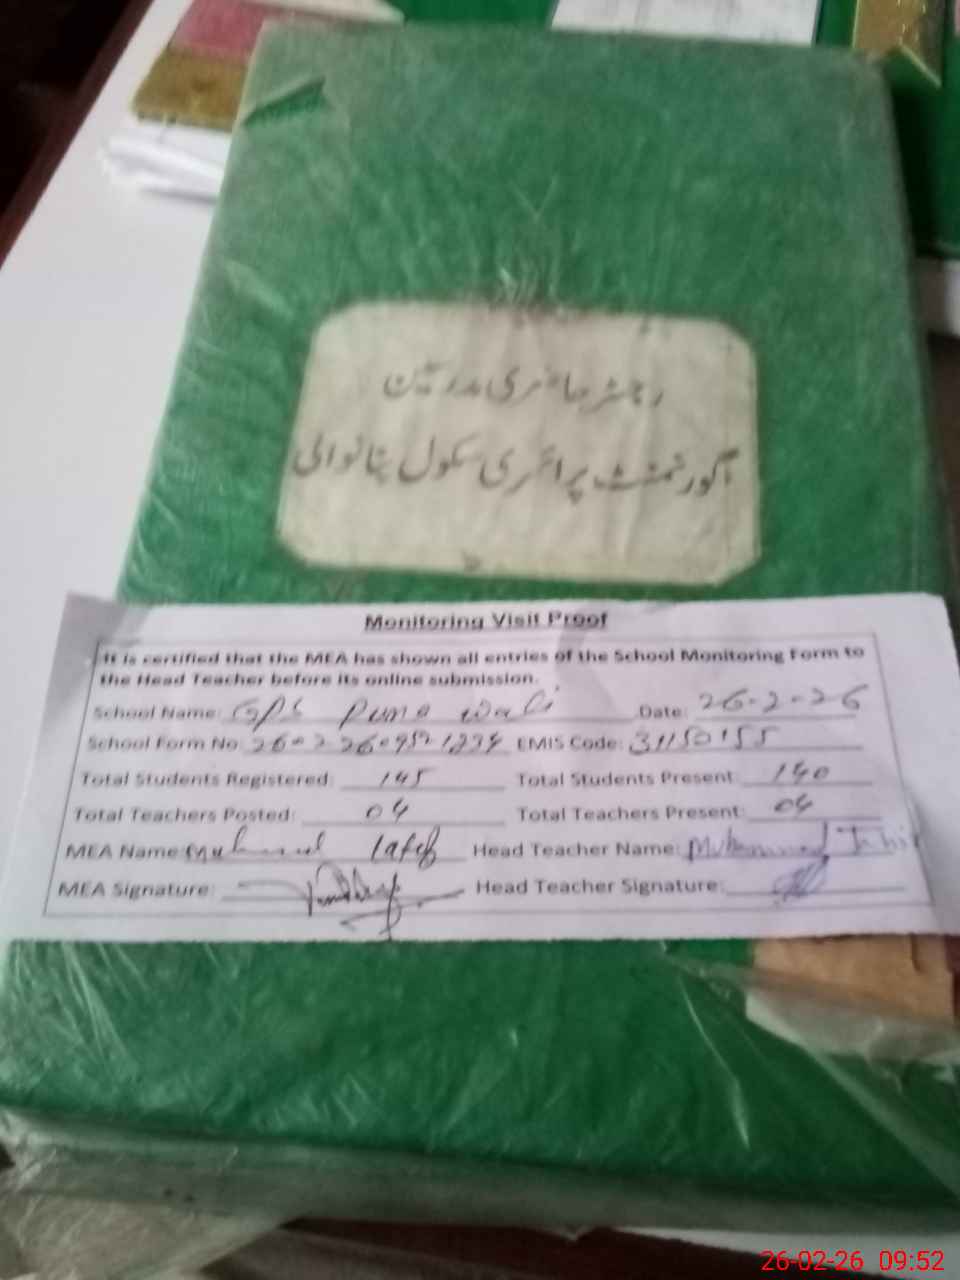 رجسٹر حاضری مدرسین
گورنمنٹ پرائمری سکول پنانوالی
Monitoring Visit Proof
It is certified that the MEA has shown all entries of the School Monitoring Form to
the Head Teacher before its online submission.
School Name: GPS Puna Wali Date: 26-2-26
School Form No: EMIS Code: 31150155
Total Students Registered: 145 Total Students Present: 140
Total Teachers Posted: 04 Total Teachers Present: 04
MEA Name: Head Teacher Name: Muhammad Tahir
MEA Signature: Head Teacher Signature:
26-02-26 09:52